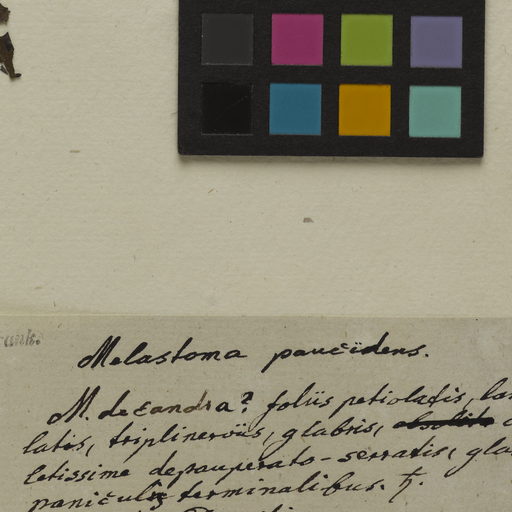 Melastoma paucidens.
M. decandra? foliis petiolatis,
latis, triplinerviis, glabris,
letissime depauperato-serratis,
paniculis terminalibus. ♄.